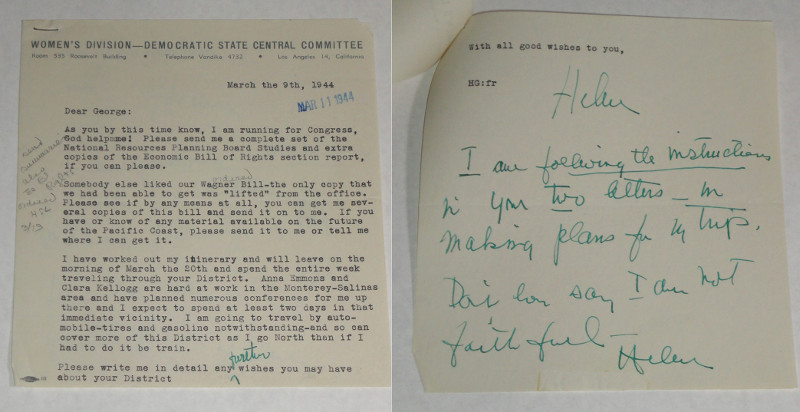 WOMEN'S DIVISION—DEMOCRATIC STATE CENTRAL COMMITTEE
Room 535 Roosevelt Building • Telephone Vandike 4152 • Los Angeles 14, California
March the 9th, 1944
MAR 11 1944
Dear George:
As you by this time know, I am running for Congress,
God helpmme! Please send me a complete set of the
National Resources Planning Board Studies and extra
copies of the Economic Bill of Rights section report,
if you can please.
ordered
Somebody else liked our Wagner Bill-the only copy that
we had been able to get was "lifted" from the office.
Please see if by any means at all, you can get me sev-
eral copies of this bill and send it on to me. If you
have or know of any material available on the future
of the Pacific Coast, please send it to me or tell me
where I can get it.
ordered
3/13
I have worked out my itinerary and will leave on the
morning of March the 20th and spend the entire week
traveling through your District. Anna Emmons and
Clara Kellogg are hard at work in the Monterey-Salinas
area and have planned numerous conferences for me up
there and I expect to spend at least two days in that
immediate vicinity. I am going to travel by auto-
mobile-tires and gasoline notwithstanding-and so can
cover more of this District as I go North then if I
had to do it be train.
further
Please write me in detail any wishes you may have
about your District
With all good wishes to you,
HG:fr
Helen
I am following the instructions
in your two letters — in
making plans for my trip.
Don't ever say I am not
faithful —
Helen